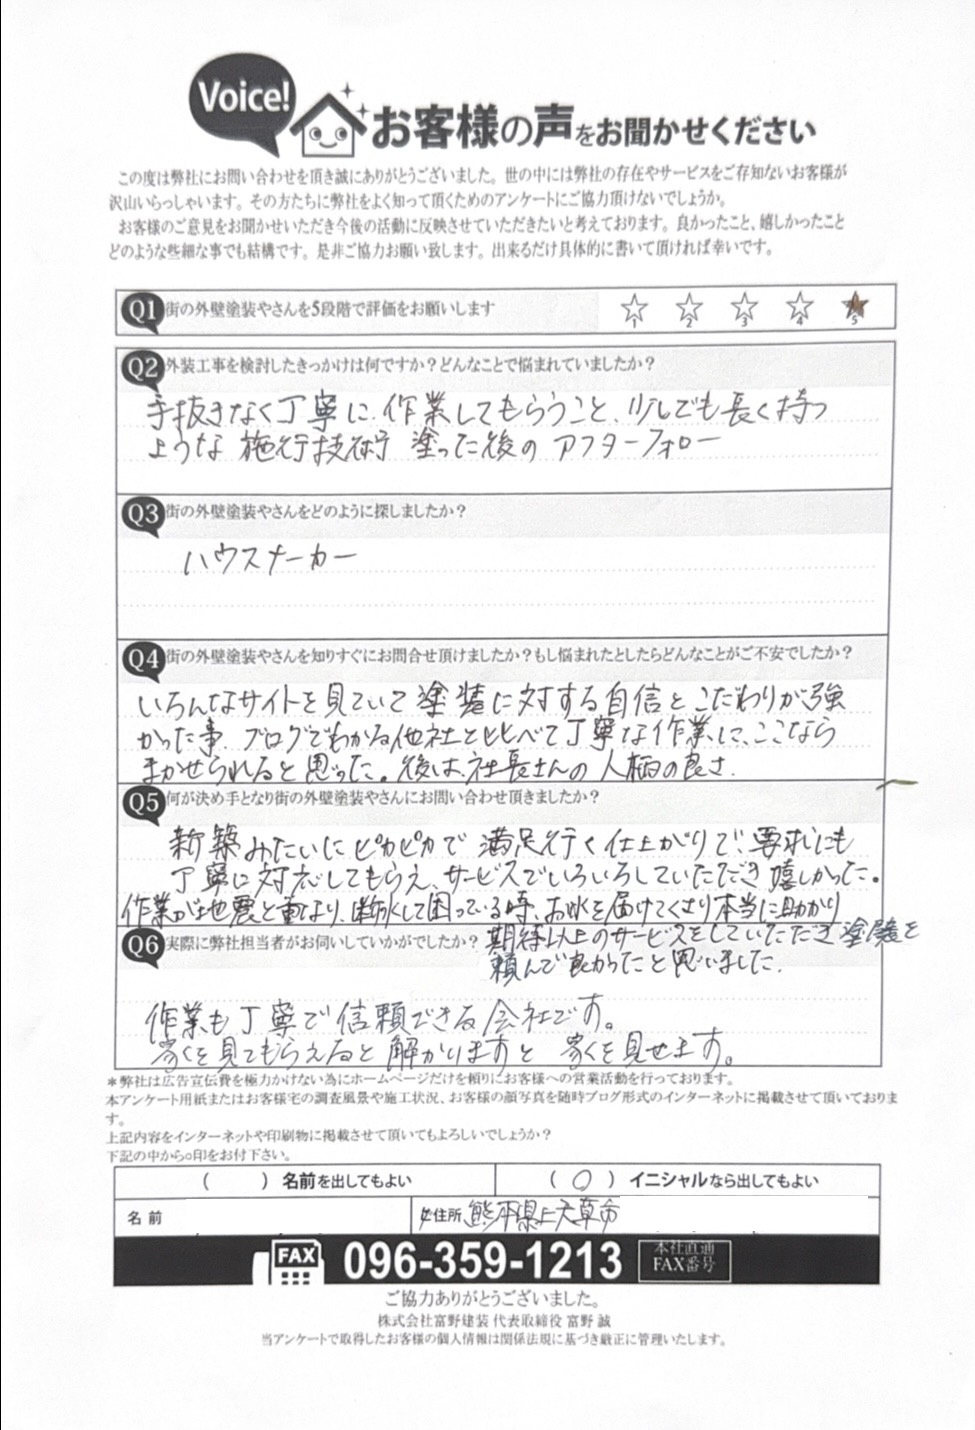 Voice!
お客様の声をお聞かせください
この度は弊社にお問い合わせを頂き誠にありがとうございました。世の中には弊社の存在やサービスをご存知ないお客様が
沢山いらっしゃいます。その方たちに弊社をよく知って頂くためのアンケートにご協力頂けないでしょうか。
お客様のご意見をお聞かせいただき今後の活動に反映させていただきたいと考えております。良かったこと、嬉しかったこと
どのような些細な事でも結構です。是非ご協力お願い致します。出来るだけ具体的に書いて頂ければ幸いです。
Q1 街の外壁塗装やさんを5段階で評価をお願いします
1 2 3 4 5
Q2 外装工事を検討したきっかけは何ですか?どんなことで悩まれていましたか?
手抜きなく丁寧に作業してもらうこと、少しでも長く持つ
ような施行技術 塗った後のアフターフォロー
Q3 街の外壁塗装やさんをどのように探しましたか?
ハウスメーカー
Q4 街の外壁塗装やさんを知りすぐにお問合せ頂けましたか?もし悩まれたとしたらどんなことがご不安でしたか?
いろんなサイトを見ていて塗装に対する自信とこだわりが強
かった事、ブログでわかる他社と比べて丁寧な作業に、ここなら
まかせられると思った。後は、社長さんの人柄の良さ.
Q5 何が決め手となり街の外壁塗装やさんにお問い合わせ頂きましたか?
新築みたいにピカピカで満足行く仕上がりで、要求にも
丁寧に対応してもらえ、サービスでいろいろしていただき嬉しかった。
作業が地震と重なり、断水して困っている時、お水を届けてくさり本当に助かり
Q6 実際に弊社担当者がお伺いしていかがでしたか?
期待以上のサービスをしていただき塗装を
頼んで良かったと思いました.
作業も丁寧で信頼できる会社です。
家を見てもらえると解かりますと 家を見せます。
*弊社は広告宣伝費を極力かけない為にホームページだけを頼りにお客様への営業活動を行っております。
本アンケート用紙またはお客様宅の調査風景や施工状況、お客様の顔写真を随時ブログ形式のインターネットに掲載させて頂いておりま
す。
上記内容をインターネットや印刷物に掲載させて頂いてもよろしいでしょうか?
下記の中から○印をお付下さい。
( ) 名前を出してもよい
( ○ ) イニシャルなら出してもよい
名前
住所 熊本県上天草市
FAX 096-359-1213 本社直通
FAX番号
ご協力ありがとうございました。
株式会社富野建装 代表取締役 富野 誠
当アンケートで取得したお客様の個人情報は関係法規に基づき厳正に管理いたします。